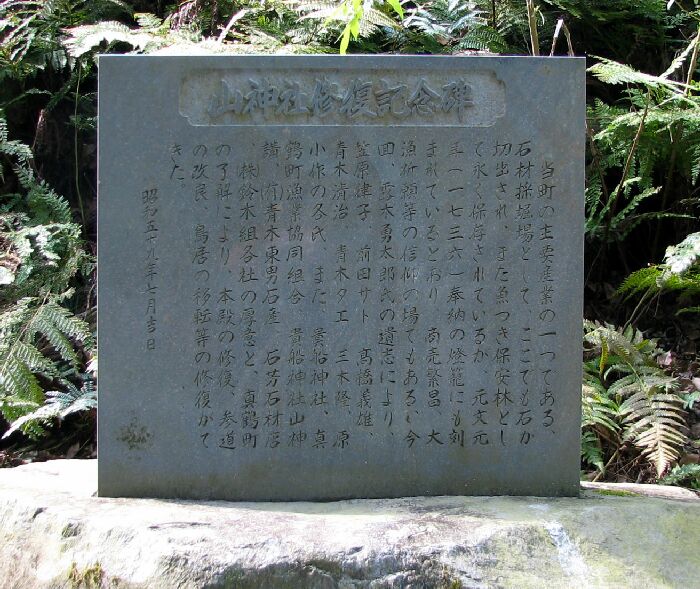 山神社修復記念碑
当町の主要産業の一つである、
石材採掘場として、ここでも石が
切出され、また魚つき保安林とし
て永く保存されているが 元文元
年(一七三六)奉納の燈籠にも刻
まれているとおり 商売繁昌 大
漁祈願等の信仰の場でもある。今
回、露木勇太郎氏の遺志により、
笠原律子、前田サト、髙橋義雄、
青木清治 青木タエ 三木隆 原
小作の各氏 また、貴船神社、真
鶴町漁業協同組合、貴船神社山神
講、(有)青木東男石産 石芳石材店
、(株)鈴木組各社の厚意と、真鶴町
の了解により、本殿の修復、参道
の改良、鳥居の移転等の修復がで
きた。
昭和五十九年七月吉日